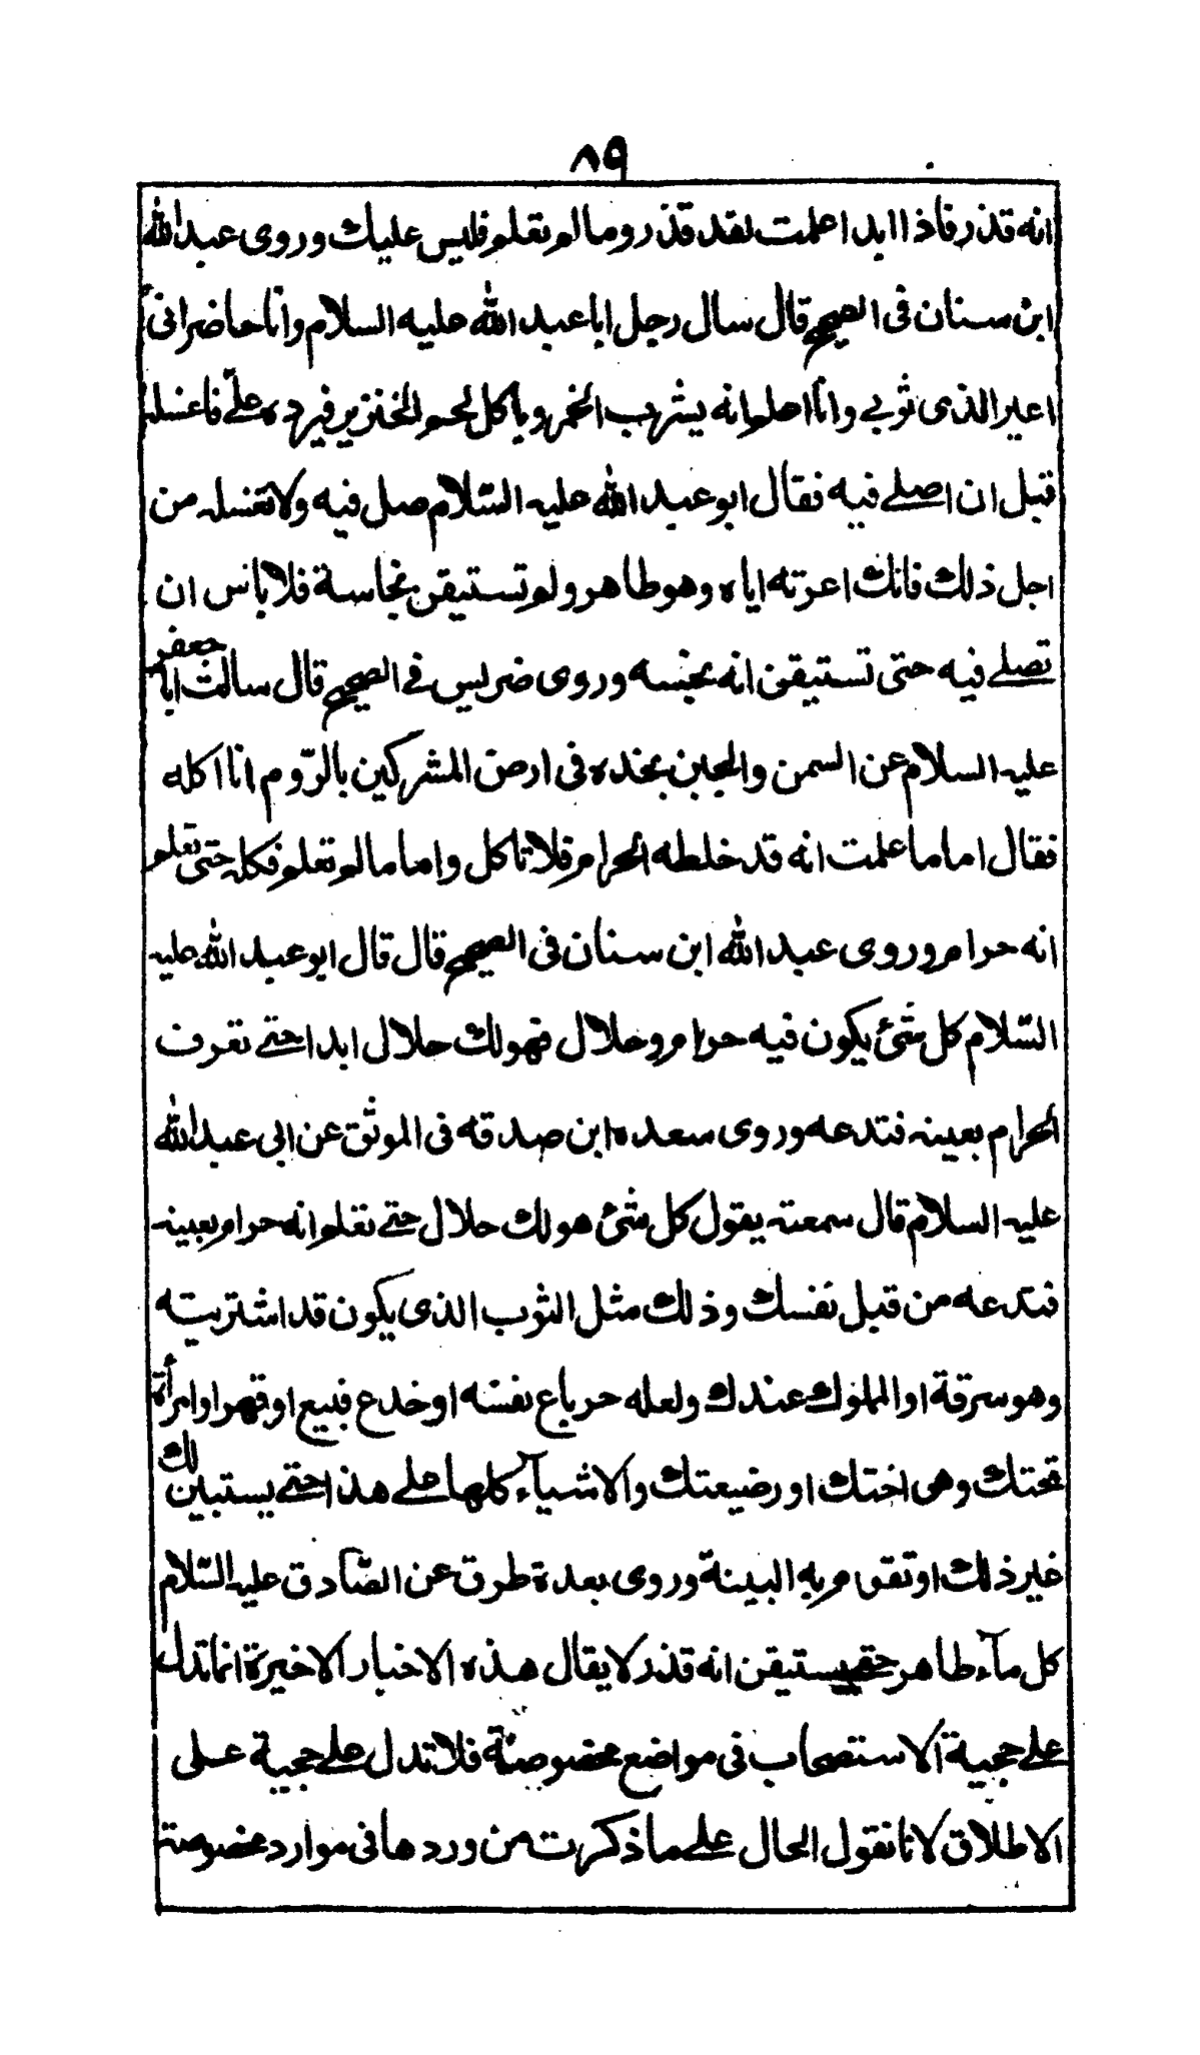 ٨٩
انه قذر فاذا ابدا علمت لقد قذر وما لم تعلم فليس عليك وروى عبد الله
ابن سنان فى الصحيح قال سال رجل ابا عبد الله عليه السلام وانا حاضر انى
اعير الذى ثوبي وانا اعلم انه يشرب الخمر وياكل لحم الخنزير فيرده علىّ فاغسله
قبل ان اصلے فيه فقال ابو عبد الله عليه السّلام صل فيه ولا تغسله من
اجل ذلك فانك اعرته اياه وهو طاهر ولم تستيقن نجاسة فلا باس ان
تصلے فيه حتى تستيقن انه نجسه وروى ضريس في الصحيح قال سالت ابا جعفر
عليه السلام عن السمن والجبن نجده فى ارض المشركين بالرّوم انا اكله
فقال اما ما علمت انه قد خلطه الحرام فلا تاكل واما ما لم تعلم فكله حتى تعلم
انه حرام وروى عبد الله ابن سنان فى الصحيح قال قال ابو عبد الله عليه
السّلام كل شئ يكون فيه حرام وحلال فهو لك حلال ابدا حتے تعرف
الحرام بعينه فتدعه وروى سعده ابن صدقه فى الموثق عن ابى عبد الله
عليه السلام قال سمعته يقول كل شئ هو لك حلال حتے تعلم انه حرام بعينه
فتدعه من قبل نفسك وذلك مثل الثوب الذى يكون قد اشتريته
وهو سرقة او المملوك عندك ولعله حر باع نفسه او خدع فبيع او قهرا او امرأة
تحتك وهى اختك او رضيعتك والاشياۤء كلها علے هذا حتے يستبين لك
غير ذلك او تقوم به البينة وروى بعدة طرق عن الصّادق عليه السّلام
كل ماۤء طاهر حتے يستيقن انه قذر لا يقال هذه الاخبار الاخيرة انما تدل
علے حجية الاستصحاب فى مواضع مخصوصة فلا تدل علے حجية على
الاطلاق لانا نقول الحال علے ما ذكرت من ورودها فى موارد مخصوصة